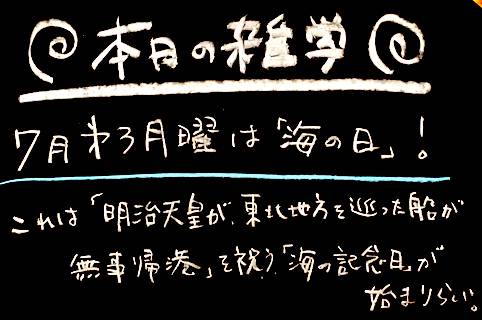 本日の雑学
7月第3月曜は「海の日」!
これは「明治天皇が、東北地方を巡った船が
無事帰港」を祝う「海の記念日」が
始まりらしい。